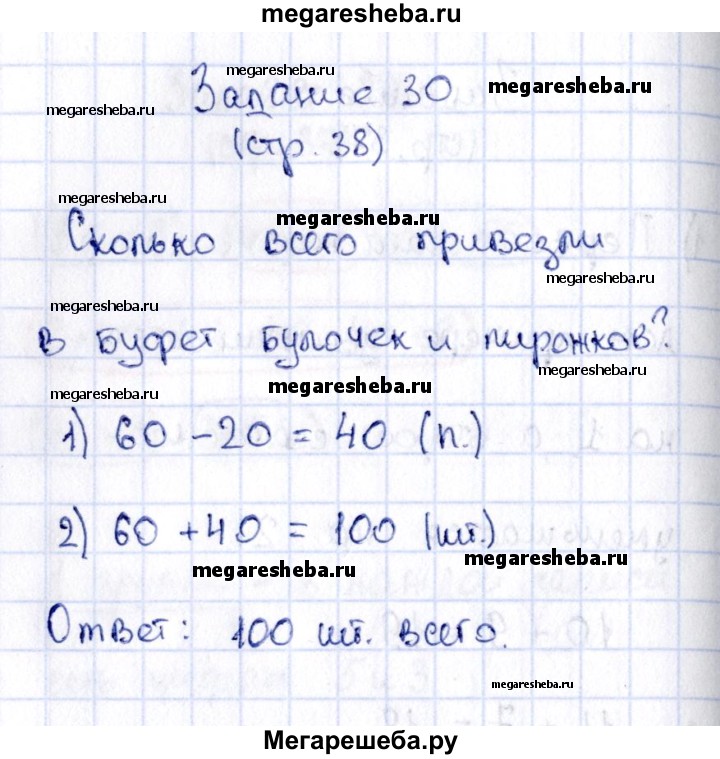 megaresheba.ru
megaresheba.ru
Задание 30
megaresheba.ru
megaresheba.ru
(стр. 38)
megaresheba.ru
megaresheba.ru
Сколько всего привезли
megaresheba.ru
megaresheba.ru
в буфет булочек и пирожков?
megaresheba.ru
megaresheba.ru
megaresheba.ru
1) 60 - 20 = 40 (п.)
2) 60 + 40 = 100 (шт.)
megaresheba.ru
megaresheba.ru
Ответ: 100 шт. всего.
megaresheba.ru
Мегарешеба.ру